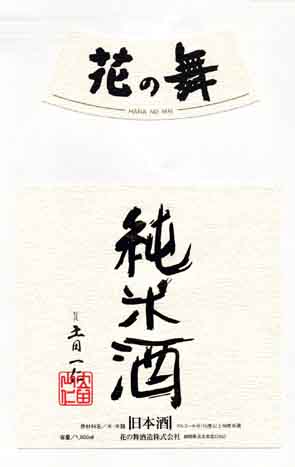 花の舞
HANA NO MAI
純米酒
土田一仁
原材料名/米・米麹
日本酒
アルコール分/15度以上16度未満
容量/1,800ml
花の舞酒造株式会社